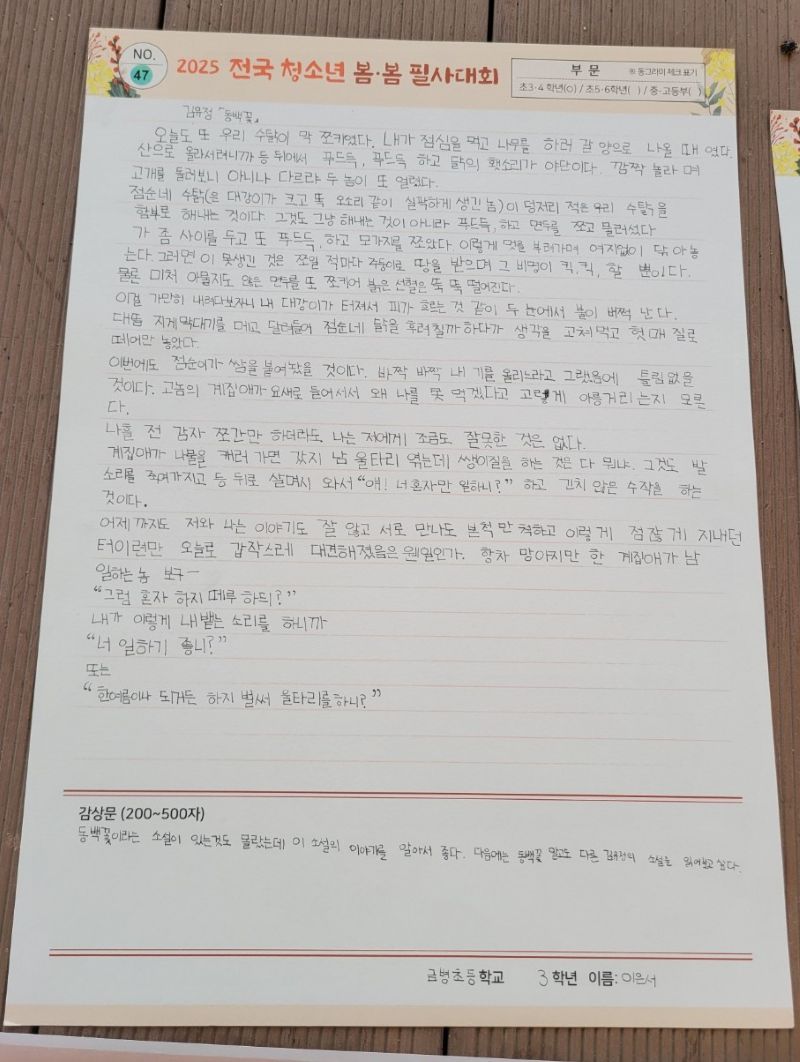 NO.
47
2025 전국 청소년 봄·봄 필사대회
부 문 ※ 동그라미 체크 표기
초3·4 학년(O) / 초5·6학년( ) / 중·고등부( )
김유정 「동백꽃」
오늘도 또 우리 수탉이 막 쪼키였다. 내가 점심을 먹고 나무를 하러 갈 양으로 나올 때 였다.
산으로 올라서려니까 등 뒤에서 푸드득, 푸드득 하고 닭의 횃소리가 야단이다. 깜짝 놀라 며
고개를 돌려보니 아니나 다르랴 두 놈이 또 얼렸다.
점순네 수탉(은 대강이가 크고 똑 오소리 같이 실팍하게 생긴 놈)이 덩저리 적은 우리 수탉을
함부로 해내는 것이다 그것도 그냥 해내는 것이 아니라 푸드득, 하고 면두를 쪼고 물러섰다
가 좀 사이를 두고 또 푸드득, 하고 모가지를 쪼았다. 이렇게 멋을 부려가며 여지없이 닦 아놓
는다. 그러면 이 못생긴 것은 쪼일 적마다 주둥이로 땅을 받으며 그 비명이 킥, 킥, 할 뿐이다.
물론 미처 아물지도 않은 면두를 또 쪼키어 붉은 선혈은 뚝 뚝 떨어진다.
이걸 가만히 내려다보자니 내 대강이가 터져서 피가 흐르는 것 같이 두 눈에서 불이 버쩍 난 다.
대뜸 지게막대기를 메고 달려들어 점순네 닭을 후려칠까 하다가 생각을 고쳐먹고 헛매 질로
떼어만 놓았다.
이번에도 점순이가 쌈을 붙여놨을 것이다. 바짝 바짝 내 기를 올리느라고 그랬음에 틀림없을
것이다. 고놈의 계집애가 요새로 들어서서 왜 나를 못 먹겠다고 고렇게 아릉거리는지 모른
다.
나흘 전 감자 쪼간만 하더라도 나는 저에게 조금도 잘못한 것은 없다.
계집애가 나물을 캐러 가면 갔지 남 울타리 엮는데 쌩이질을 하는 것은 다 뭐냐. 그것도 발
소리를 죽여가지고 등 뒤로 살며시 와서 “얘! 너 혼자만 일하니?” 하고 긴치 않은 수작을 하는
것이다.
어제 까지도 저와 나는 이야기도 잘 않고 서로 만나도 본척 만 척하고 이렇게 점잖게 지내던
터이련만 오늘로 갑작스레 대견해졌음은 웬일인가. 항차 망아지만 한 계집애가 남
일하는 놈 보구—
“그럼 혼자 하지 떼루 하듸?”
내가 이렇게 내뱉는 소리를 하니까
“너 일하기 좋니?”
또는
“한여름이나 되거든 하지 벌써 울타리를하니?”
감상문 (200~500자)
동백꽃이라는 소설이 있는것도 몰랐는데 이 소설의 이야기를 알아서 좋다. 다음에는 동백꽃 말고도 다른 김유정의 소설을 읽어보고 싶다.
금병초등학교 3 학년 이름: 이은서